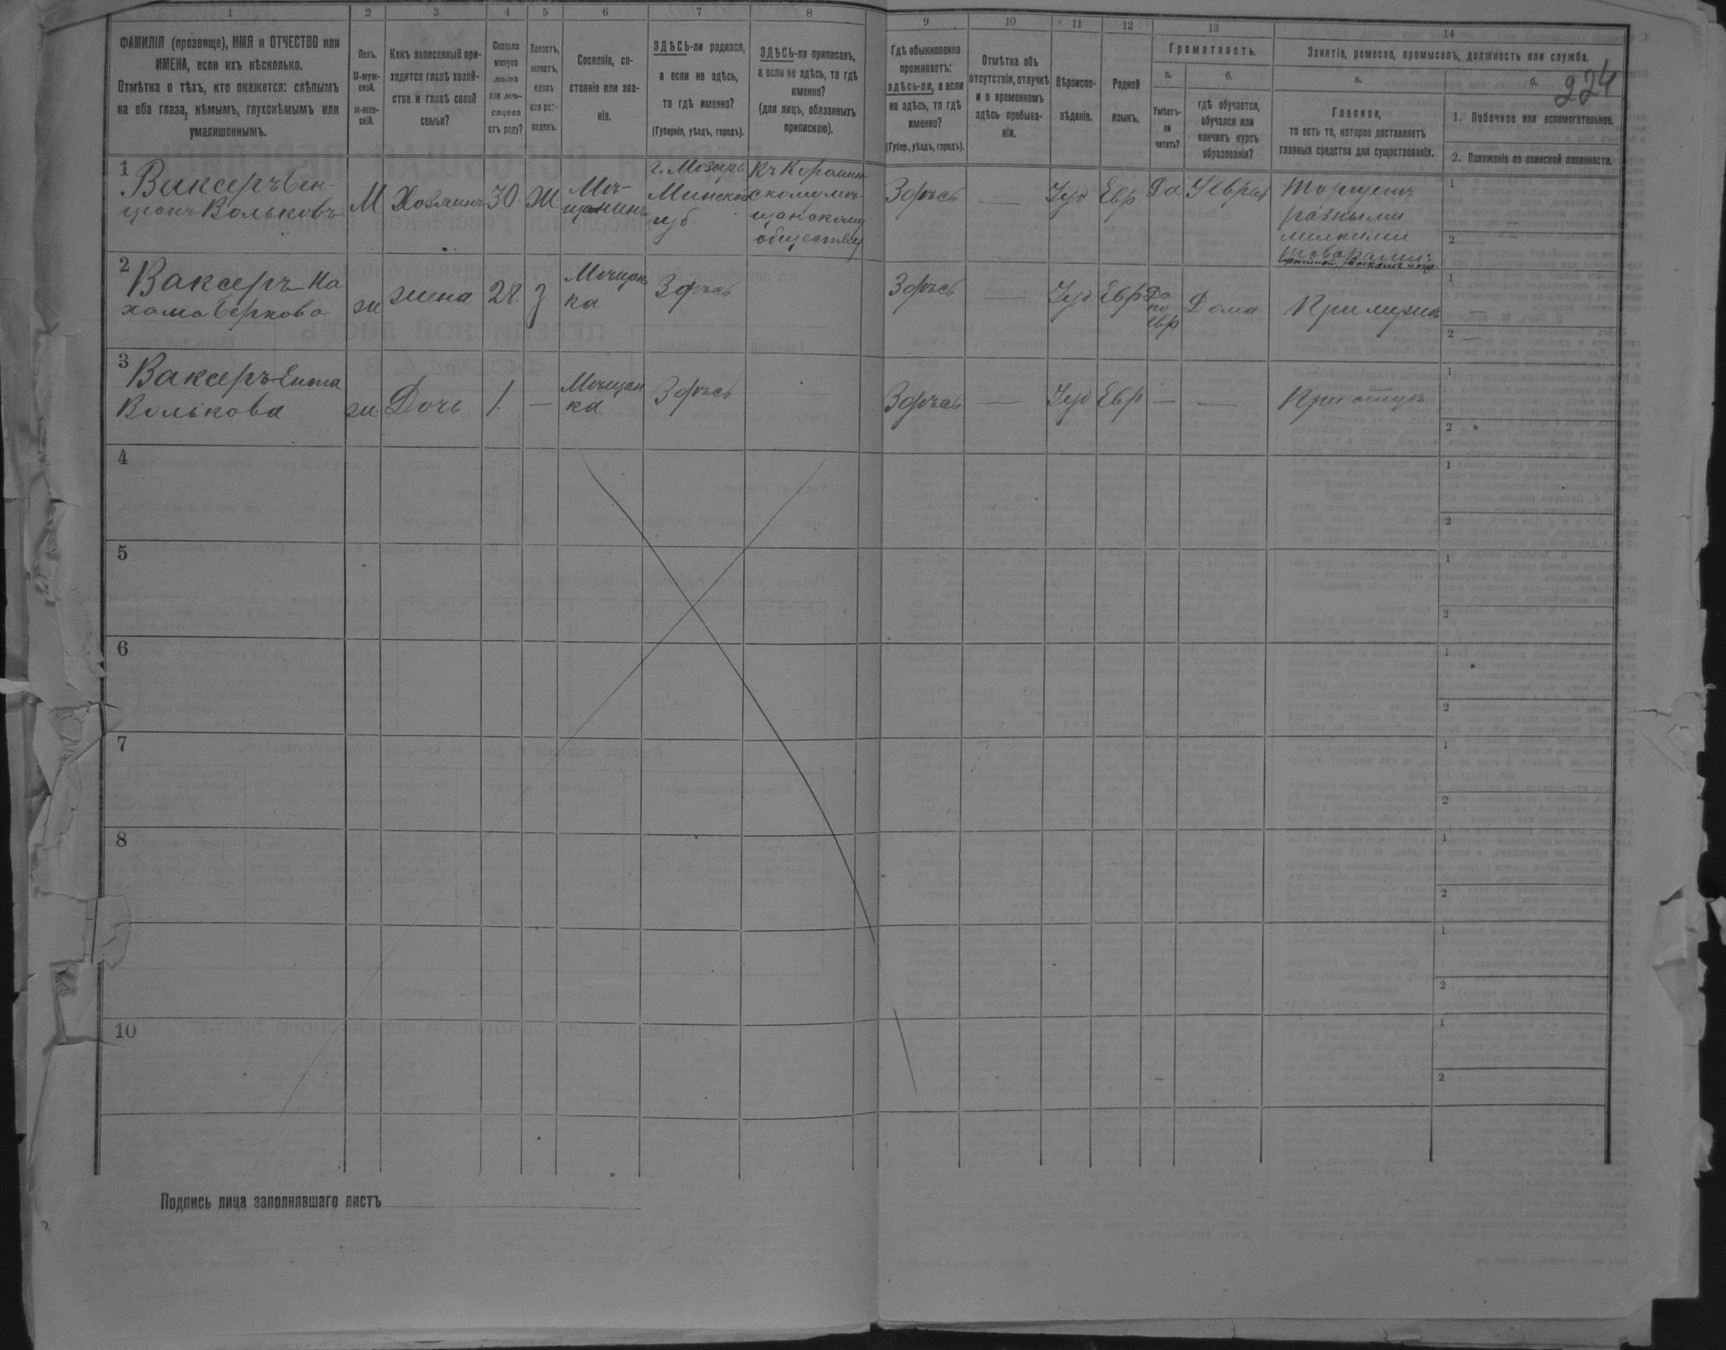 1 2 3 4 5 6 7 8 9 10 11 12 13 14
ФАМИЛІЯ (прозвище), ИМЯ и ОТЧЕСТВО или
ИМЕНА, если ихъ нѣсколько.
Отмѣтка о тѣхъ, кто окажется: слѣпымъ
на оба глаза, нѣмымъ, глухонѣмымъ или
умалишеннымъ.
Полъ.
М-муж-
ской.
Ж-жен-
скій.
Какъ записанный при-
ходится главѣ хозяй-
ства и главѣ своей
семьи?
Сколько
минуло
лѣтъ
или мѣ-
сяцевъ
отъ роду?
Холостъ,
женатъ,
вдовъ
или раз-
веденъ.
Сословіе, со-
стояніе или зва-
ніе.
ЗДѢСЬ-ли родился,
а если не здѣсь,
то гдѣ именно?
(Губернія, уѣздъ, городъ).
ЗДѢСЬ-ли приписанъ,
а если не здѣсь, то гдѣ
именно?
(для лицъ, обязанныхъ
припискою).
Гдѣ обыкновенно
проживаетъ:
здѣсь-ли, а если
не здѣсь, то гдѣ
именно?
(Губер., уѣздъ, городъ).
Отмѣтка объ
отсутствіи, отлучкѣ
и о временномъ
здѣсь пребыва-
ніи.
Вѣроиспо-
вѣданіе.
Родной
языкъ.
Грамотность.
а.
Умѣетъ-
ли
читать?
б.
гдѣ обучается,
обучался или
кончилъ курсъ
образованія?
Занятіе, ремесло, промыселъ, должность или служба.
а.
Главное,
то есть то, которое доставляетъ
главныя средства для существованія.
б.
224
1. Побочное или вспомогательное.
2. Положеніе по воинской повинности.
1
Ваксеръ Бен-
ціонъ Вольковъ
М
Хозяинъ
30
Ж
Мѣ-
щанинъ
г. Мозырь
Минской
губ.
Къ Королин-
скому мѣ-
щанскому
обществу
Здѣсь
—
Іуд
Евр
Да
У Евреи
Торгуетъ
разными
мелкими
товарами:
1
2
2
Ваксеръ На
хама Беркова
ж
жена
28.
З
Мѣщан
ка
Здѣсь
Здѣсь
—
Іуд
Евр
Да
по
евр
Дома
При мужѣ
1 —
2 —
3
Ваксеръ Ента
Волькова
ж
Дочь
1.
—
Мѣщан
ка
Здѣсь
Здѣсь
—
Іуд
Евр
—
—
При отцѣ
1
2
4
1
2
5
1
2
6
1
2
7
1
2
8
1
2
1
2
10
1
2
Подпись лица заполнявшаго листъ